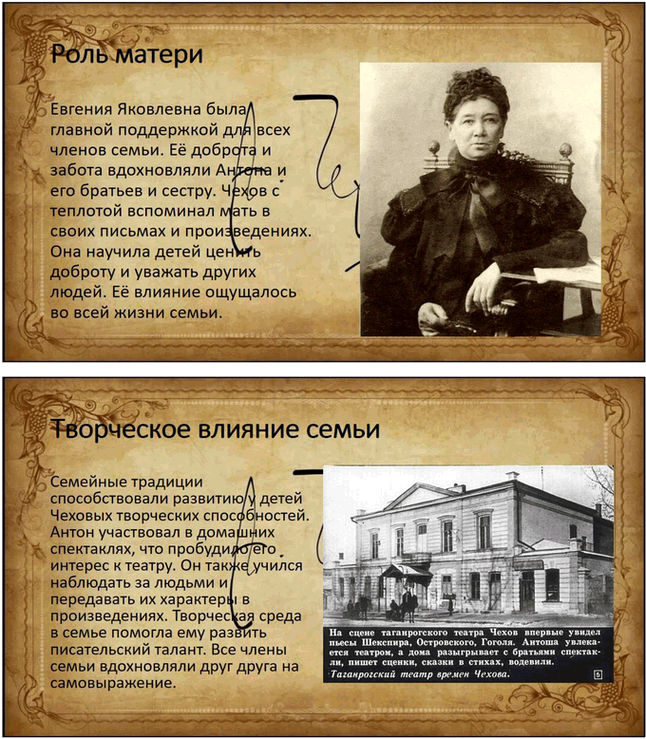 Роль матери
Евгения Яковлевна была
главной поддержкой для всех
членов семьи. Её доброта и
забота вдохновляли Антона и
его братьев и сестру. Чехов с
теплотой вспоминал мать в
своих письмах и произведениях.
Она научила детей ценить
доброту и уважать других
людей. Её влияние ощущалось
во всей жизни семьи.
Творческое влияние семьи
Семейные традиции
способствовали развитию у детей
Чеховых творческих способностей.
Антон участвовал в домашних
спектаклях, что пробудило его
интерес к театру. Он также учился
наблюдать за людьми и
передавать их характеры в
произведениях. Творческая среда
в семье помогла ему развить
писательский талант. Все члены
семьи вдохновляли друг друга на
самовыражение.
На сцене таганрогского театра Чехов впервые увидел
пьесы Шекспира, Островского, Гоголя. Антоша увлека-
ется театром, а дома разыгрывает с братьями спектак-
ли, пишет сценки, сказки в стихах, водевили.
Таганрогский театр времен Чехова.